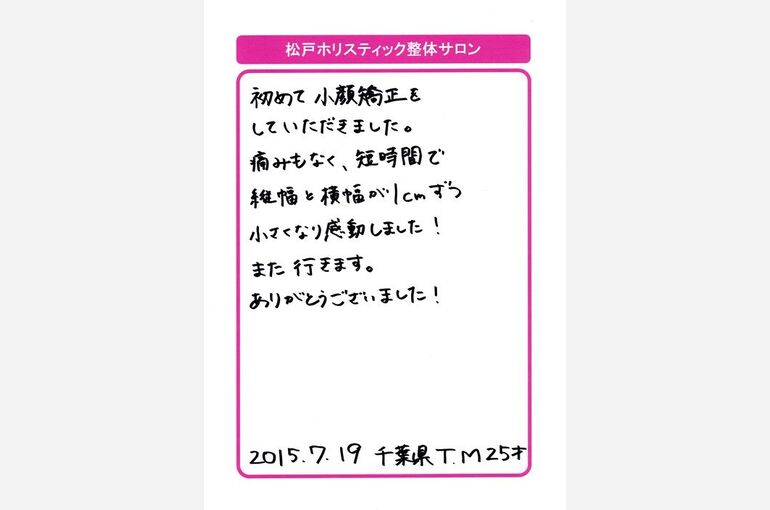 松戸ホリスティック整体サロン
初めて小顔矯正を
していただきました。
痛みもなく、短時間で
縦幅と横幅が1cmずつ
小さくなり感動しました!
また行きます。
ありがとうございました!
2015.7.19 千葉県 T.M 25才